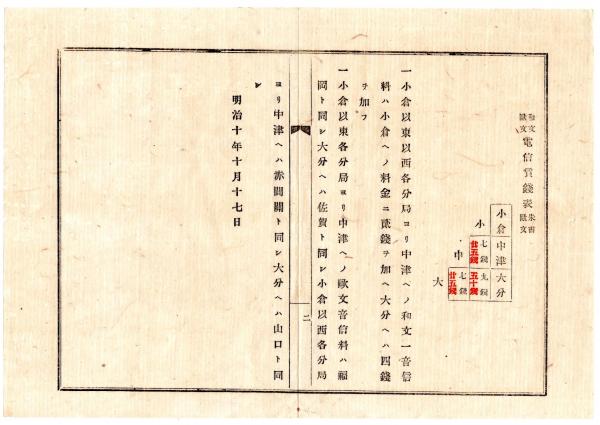 和文
歐文 電信賃錢表 朱書
歐文
小倉 中津 大分
小 七錢 九錢
廿五錢 五十錢
中 七錢
廿五錢
大
一小倉以東以西各分局ヨリ中津ヘノ和文一音信
料ハ小倉ヘノ料金ニ貳錢ヲ加ヘ大分ヘハ四錢
ヲ加フ
一小倉以東各分局ヨリ中津ヘノ歐文音信料ハ福
岡ト同シ大分ヘハ佐賀ト同シ小倉以西各分局
ヨリ中津ヘハ赤間關ト同シ大分ヘハ山口ト同
シ
明治十年十月十七日
二